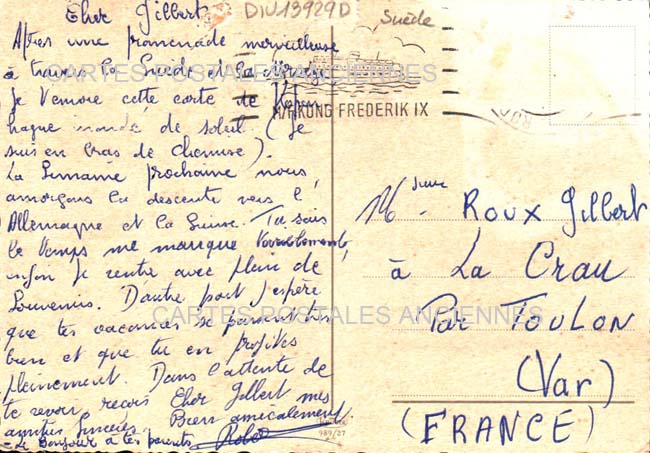 Cher Gilbert
DIV13929D
Suède
Après une promenade merveilleuse
à travers la Suède et la
CARTES POSTALES ANCIENNES
Je t'envoie cette carte de Copen
hague inondé de soleil. (Je
M/F KONG FREDERIK IX
suis en bras de chemise).
La semaine prochaine nous
amorçons la descente vers l'
Allemagne et la Suisse. Tu sais
le temps me manque
enfin je rentre avec plein de
Souvenirs. D'autre part j'espère
CARTES POSTALES ANCIENNES
que tes vacances se passent très
bien et que tu en profites
pleinement. Dans l'attente de
te revoir reçois Cher Gilbert mes
amitiés sincères. Bien amicalement
- Le Bonjour à tes parents
989/27
Roux Gilbert
à La Crau
Par TOULON
(Var)
(FRANCE)